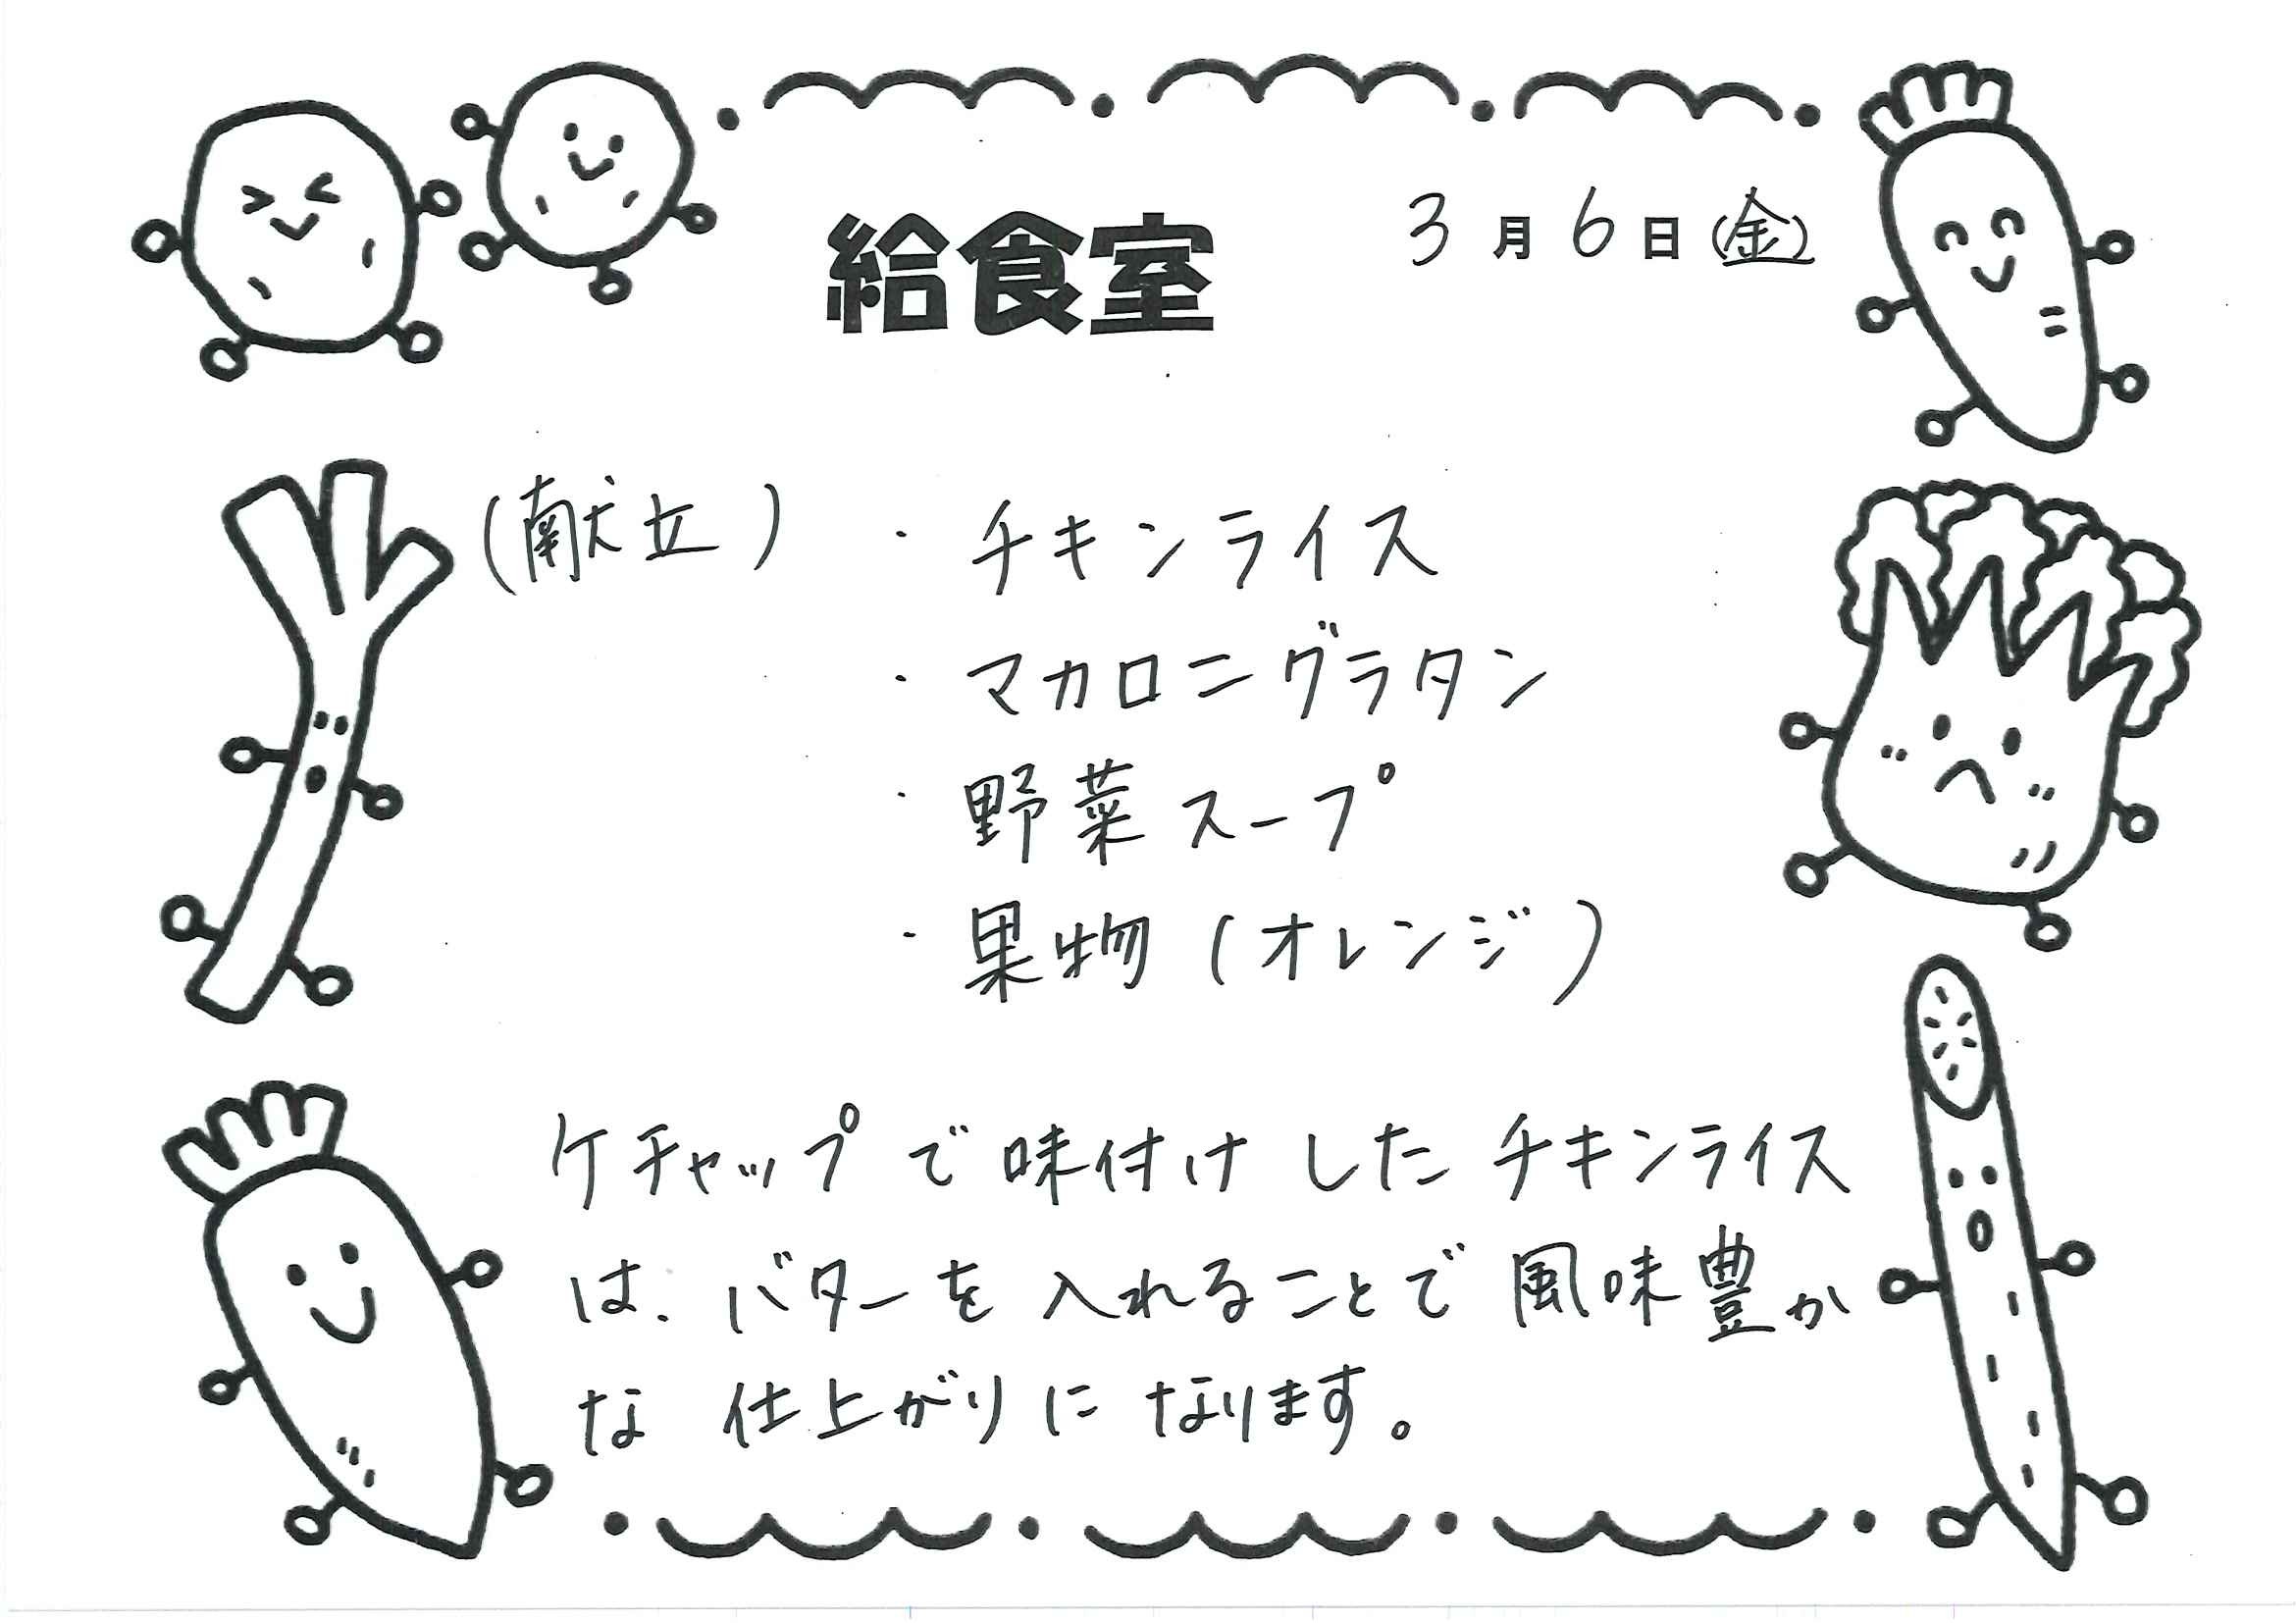 給食室
3月6日(金)
(献立) ・チキンライス
・マカロニグラタン
・野菜スープ
・果物(オレンジ)
ケチャップで味付けしたチキンライス
は、バターを入れることで風味豊か
な仕上がりになります。